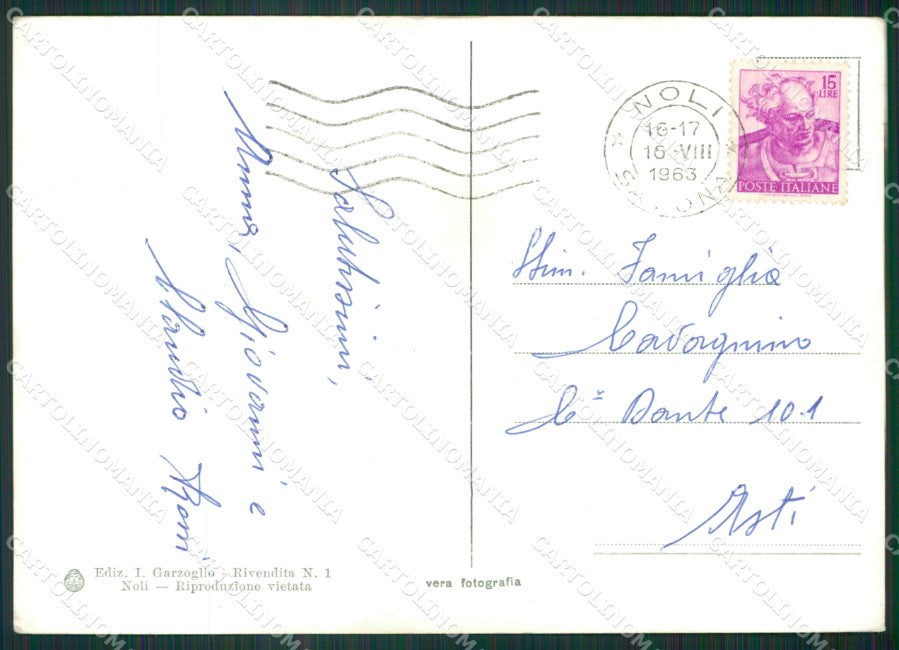 Salutissimi,
Anna, Giovanni e
Claudio
NOLI
16-17
16 VIII
1963
15
LIRE
POSTE ITALIANE
Stim. Famiglia
Cavagnino
C.º Dante 101
Asti
Ediz. I. Garzoglio - Rivendita N. 1
Noli — Riproduzione vietata
vera fotografia
CARTOLINOMANIA